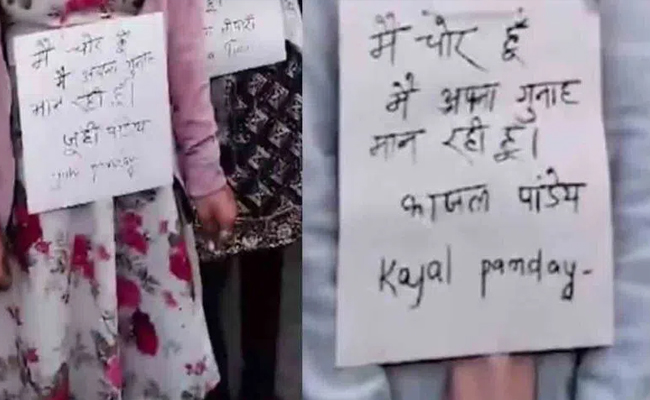 मै चोर हूँ
मै अपना गुनाह
मान रही हूँ।
जूही पांडेय
मै चोर हूँ
मै अपना गुनाह
मान रही हूँ।
काजल पांडेय
Kajal panday-